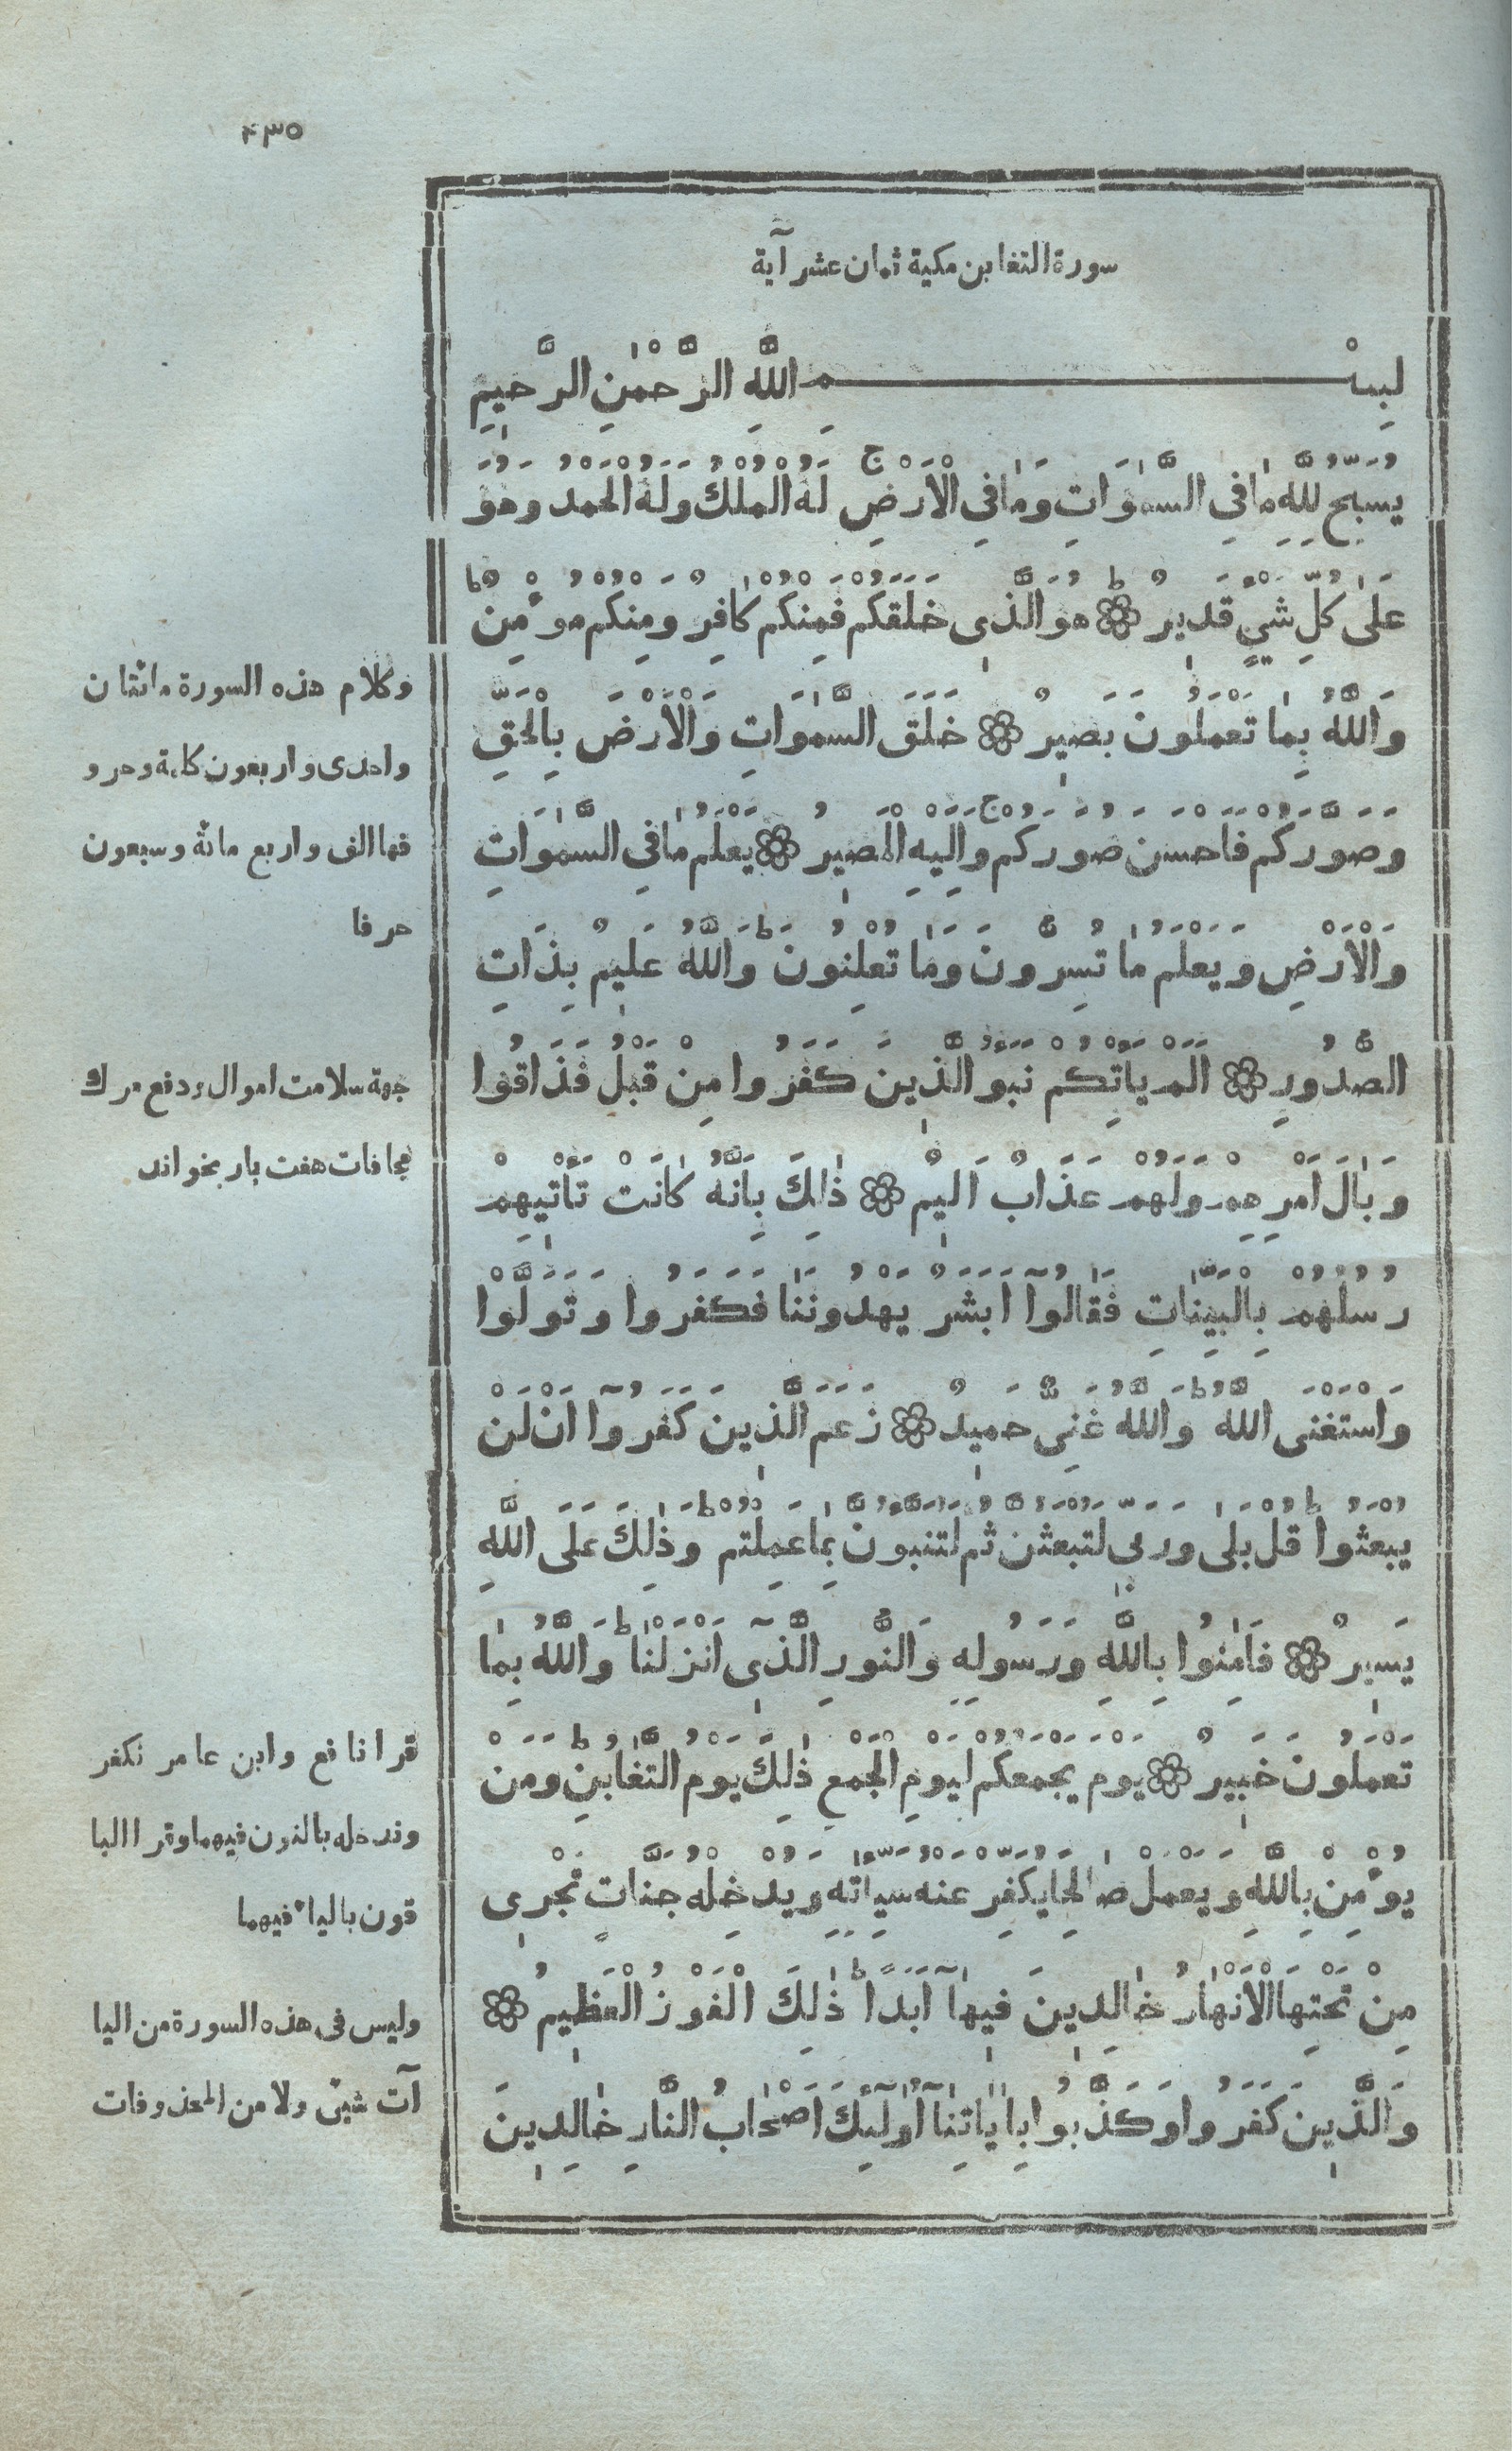 ۴۳۵
سورة التغابن مكية ثمان عشر آية
بِسْمِ اللَّهِ الرَّحْمٰنِ الرَّحِيمِ
يُسَبِّحُ لِلَّهِ مَا فِي السَّمٰوَاتِ وَمَا فِي الْاَرْضِ ج لَهُ الْمُلْكُ وَلَهُ الْحَمْدُ وَهُوَ
عَلٰى كُلِّ شَيْءٍ قَدِيرٌ ۞ هُوَ الَّذِي خَلَقَكُمْ فَمِنْكُمْ كَافِرٌ وَمِنْكُمْ مُؤْمِنٌ ط
وَاللَّهُ بِمَا تَعْمَلُونَ بَصِيرٌ ۞ خَلَقَ السَّمٰوَاتِ وَالْاَرْضَ بِالْحَقِّ
وَصَوَّرَكُمْ فَاَحْسَنَ صُوَرَكُمْ ج وَاِلَيْهِ الْمَصِيرُ ۞ يَعْلَمُ مَا فِي السَّمٰوَاتِ
وَالْاَرْضِ وَيَعْلَمُ مَا تُسِرُّونَ وَمَا تُعْلِنُونَ ط وَاللَّهُ عَلِيمٌ بِذَاتِ
الصُّدُورِ ۞ اَلَمْ يَأْتِكُمْ نَبَؤُ الَّذِينَ كَفَرُوا مِنْ قَبْلُ فَذَاقُوا
وَبَالَ اَمْرِهِمْ وَلَهُمْ عَذَابٌ اَلِيمٌ ۞ ذٰلِكَ بِاَنَّهُ كَانَتْ تَأْتِيهِمْ
رُسُلُهُمْ بِالْبَيِّنَاتِ فَقَالُوآ اَبَشَرٌ يَهْدُونَنَا فَكَفَرُوا وَتَوَلَّوْا
وَاسْتَغْنَى اللَّهُ ط وَاللَّهُ غَنِيٌّ حَمِيدٌ ۞ زَعَمَ الَّذِينَ كَفَرُوآ اَنْ لَنْ
يُبْعَثُوا ط قُلْ بَلٰى وَرَبِّي لَتُبْعَثُنَّ ثُمَّ لَتُنَبَّؤُنَّ بِمَا عَمِلْتُمْ ط وَذٰلِكَ عَلَى اللَّهِ
يَسِيرٌ ۞ فَاٰمِنُوا بِاللَّهِ وَرَسُولِهِ وَالنُّورِ الَّذِيٓ اَنْزَلْنَا ط وَاللَّهُ بِمَا
تَعْمَلُونَ خَبِيرٌ ۞ يَوْمَ يَجْمَعُكُمْ لِيَوْمِ الْجَمْعِ ذٰلِكَ يَوْمُ التَّغَابُنِ ط وَمَنْ
يُؤْمِنْ بِاللَّهِ وَيَعْمَلْ صَالِحًا يُكَفِّرْ عَنْهُ سَيِّاٰتِهِ وَيُدْخِلْهُ جَنَّاتٍ تَجْرِي
مِنْ تَحْتِهَا الْاَنْهَارُ خَالِدِينَ فِيهَآ اَبَدًا ط ذٰلِكَ الْفَوْزُ الْعَظِيمُ ۞
وَالَّذِينَ كَفَرُوا وَكَذَّبُوا بِاٰيَاتِنَآ اُولٰٓئِكَ اَصْحَابُ النَّارِ خَالِدِينَ
وكلام هذه السورة مائتان
واحدى واربعون كلمة وحرو
فها الف واربع مائة وسبعون
حرفا
جهة سلامت اموال ودفع مرك
مجافات هفت بار بخواند
قرا نافع وابن عامر نكفر
وندخله بالنون فيهما وقرا البا
قون بالياء فيهما
وليس فى هذه السورة من اليا
آت شيئ ولا من المحذوفات